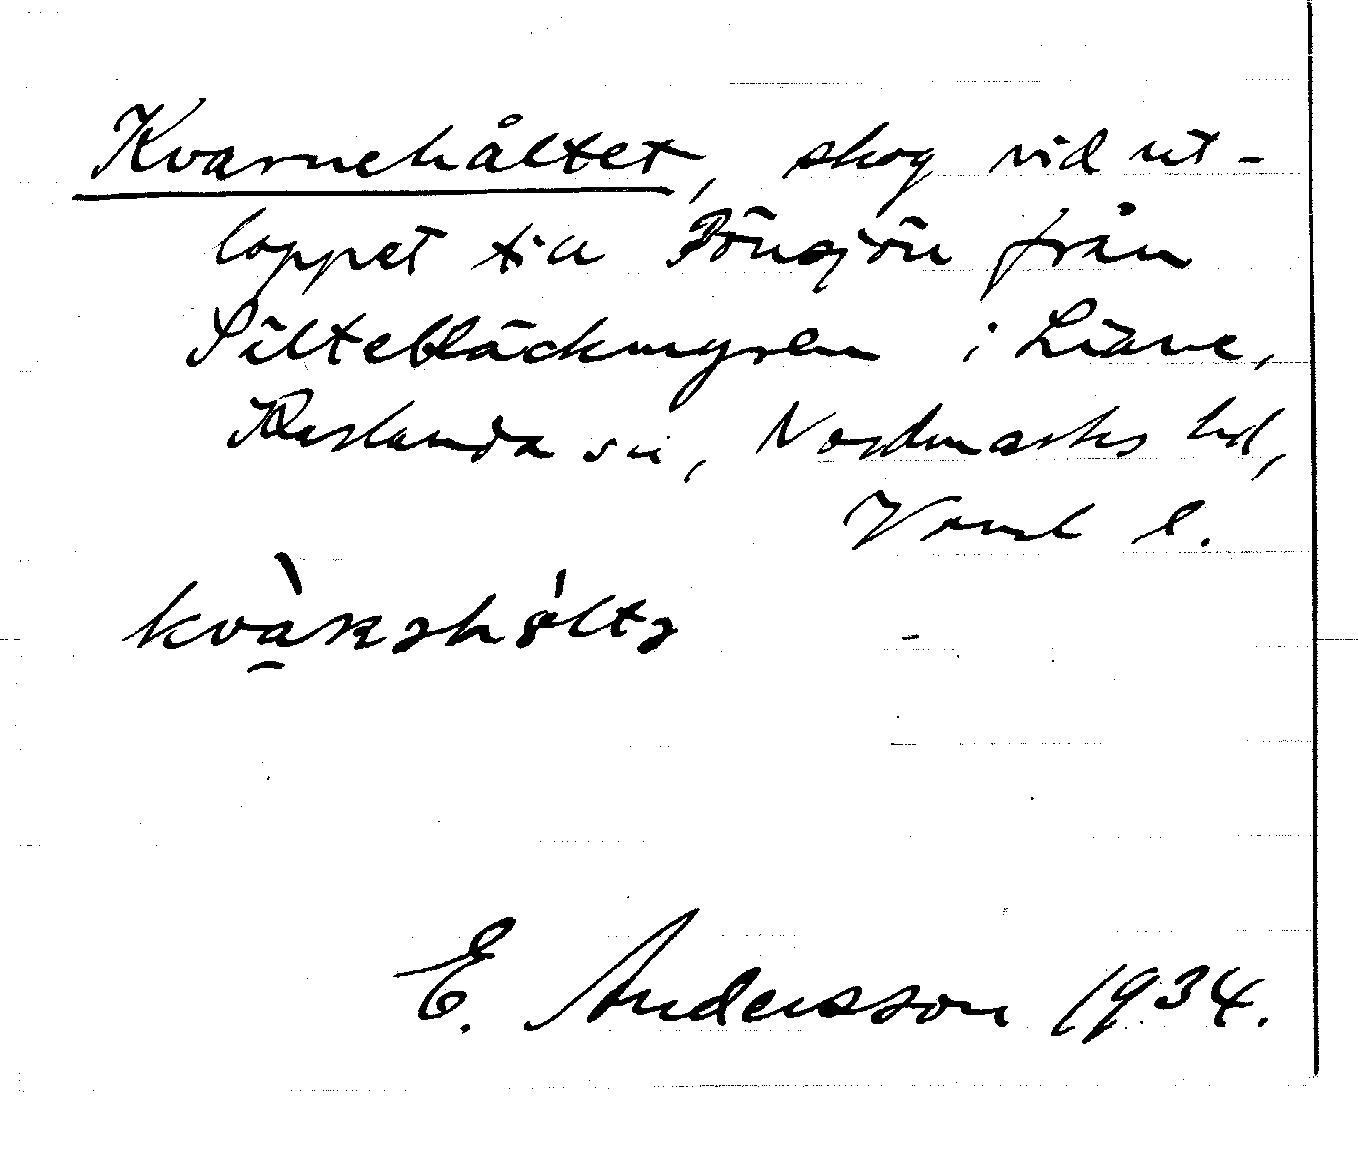 Kvarnehåltet, skog vid ut-
loppet till Bönsjön från
Siltebläckmyren i Liane,
Karlanda sn, Nordmarks hd,
Värml l.
E. Andersson 1934.